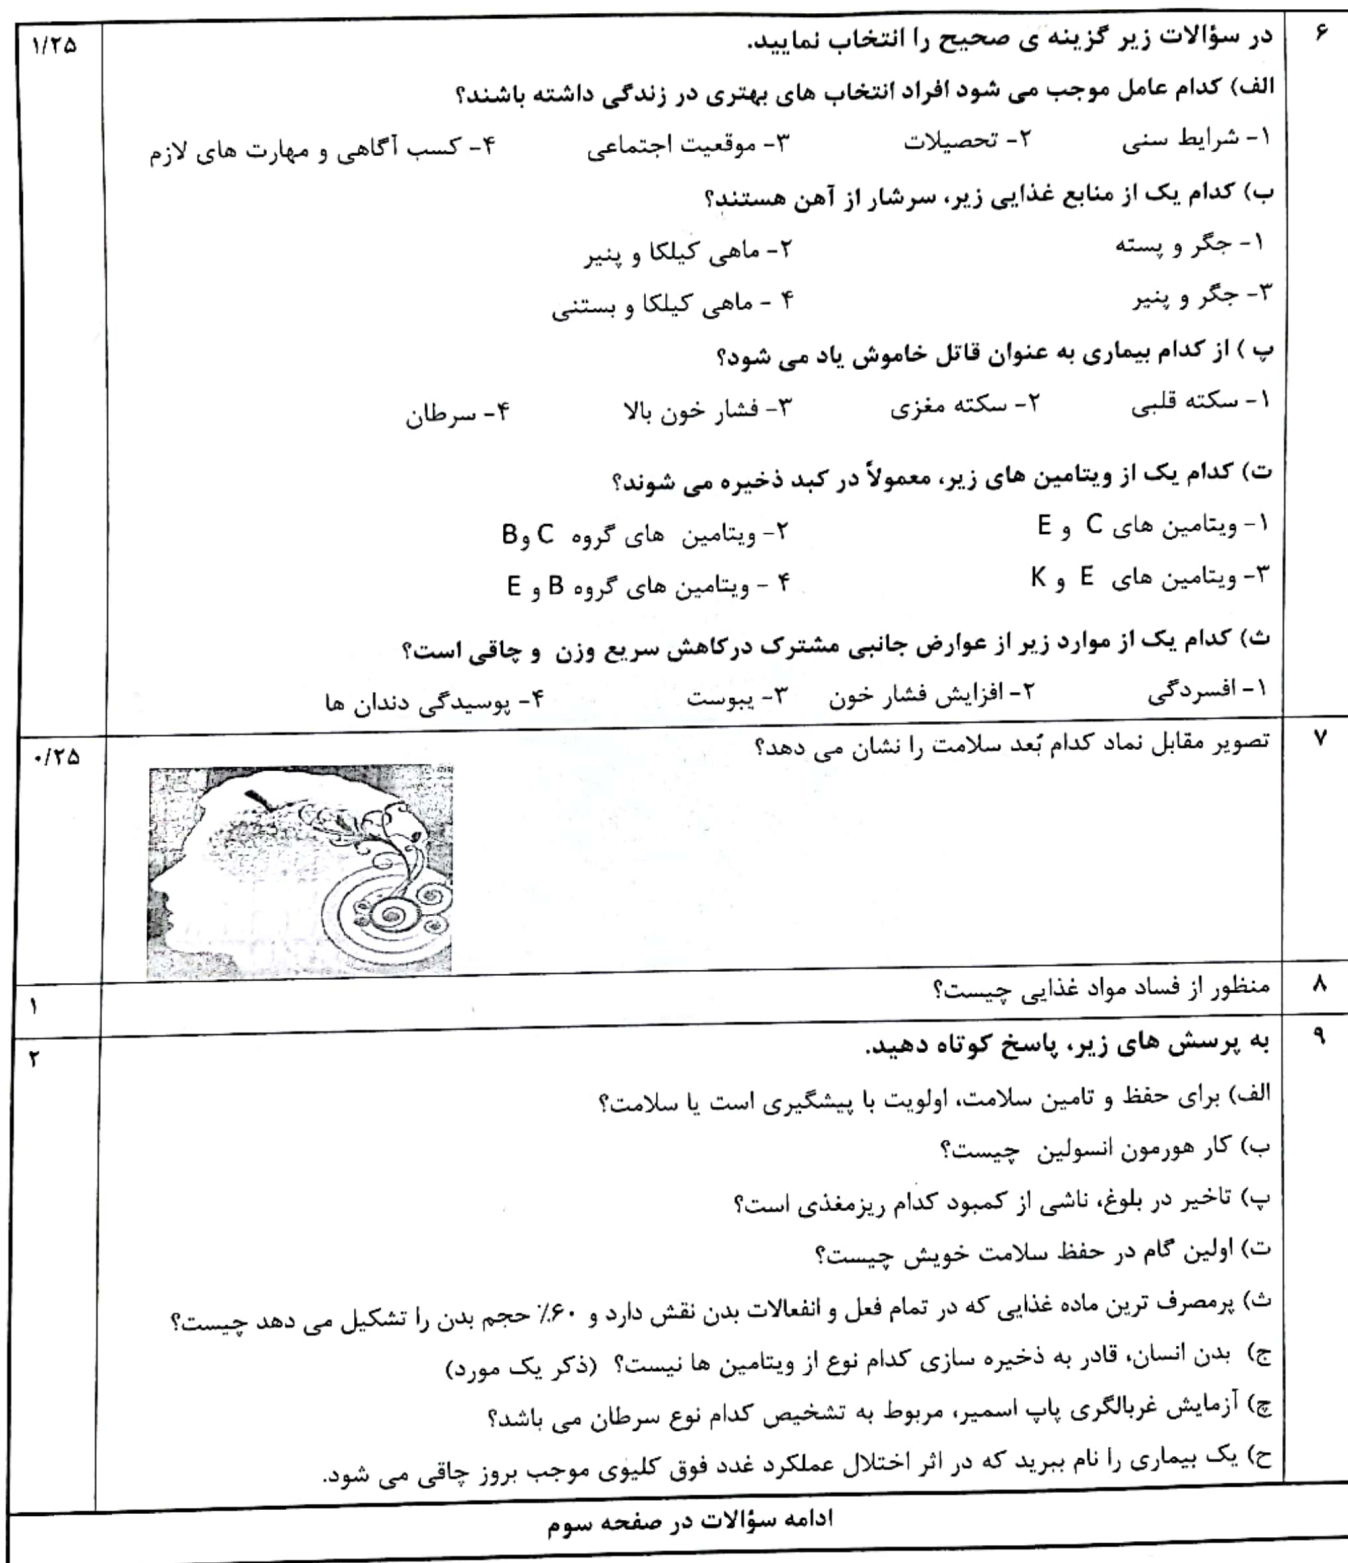 ۶ در سؤالات زیر گزینه ی صحیح را انتخاب نمایید. ۱/۲۵
الف) کدام عامل موجب می شود افراد انتخاب های بهتری در زندگی داشته باشند؟
۱- شرایط سنی ۲- تحصیلات ۳- موقعیت اجتماعی ۴- کسب آگاهی و مهارت های لازم
ب) کدام یک از منابع غذایی زیر، سرشار از آهن هستند؟
۱- جگر و پسته ۲- ماهی کیلکا و پنیر
۳- جگر و پنیر ۴ - ماهی کیلکا و بستنی
پ ) از کدام بیماری به عنوان قاتل خاموش یاد می شود؟
۱- سکته قلبی ۲- سکته مغزی ۳- فشار خون بالا ۴- سرطان
ت) کدام یک از ویتامین های زیر، معمولاً در کبد ذخیره می شوند؟
۱- ویتامین های C و E ۲- ویتامین های گروه C وB
۳- ویتامین های E و K ۴ - ویتامین های گروه B و E
ث) کدام یک از موارد زیر از عوارض جانبی مشترک درکاهش سریع وزن و چاقی است؟
۱- افسردگی ۲- افزایش فشار خون ۳- یبوست ۴- پوسیدگی دندان ها
۷ تصویر مقابل نماد کدام بُعد سلامت را نشان می دهد؟ ۰/۲۵
۸ منظور از فساد مواد غذایی چیست؟ ۱
۹ به پرسش های زیر، پاسخ کوتاه دهید. ۲
الف) برای حفظ و تامین سلامت، اولویت با پیشگیری است یا سلامت؟
ب) کار هورمون انسولین چیست؟
پ) تاخیر در بلوغ، ناشی از کمبود کدام ریزمغذی است؟
ت) اولین گام در حفظ سلامت خویش چیست؟
ث) پرمصرف ترین ماده غذایی که در تمام فعل و انفعالات بدن نقش دارد و ۶۰٪ حجم بدن را تشکیل می دهد چیست؟
ج) بدن انسان، قادر به ذخیره سازی کدام نوع از ویتامین ها نیست؟ (ذکر یک مورد)
چ) آزمایش غربالگری پاپ اسمیر، مربوط به تشخیص کدام نوع سرطان می باشد؟
ح) یک بیماری را نام ببرید که در اثر اختلال عملکرد غدد فوق کلیوی موجب بروز چاقی می شود.
ادامه سؤالات در صفحه سوم